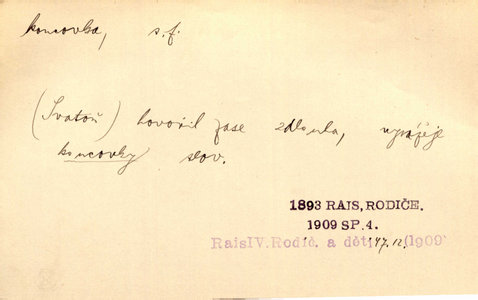 koncovka, s.f.
(Svatoň) hovořil zase zdlouha, vyrážeje
koncovky slov.
1893 RAIS, RODIČE.
1909 SP. 4.
RaisIV.Rodič. a děti, 147.12. (1909